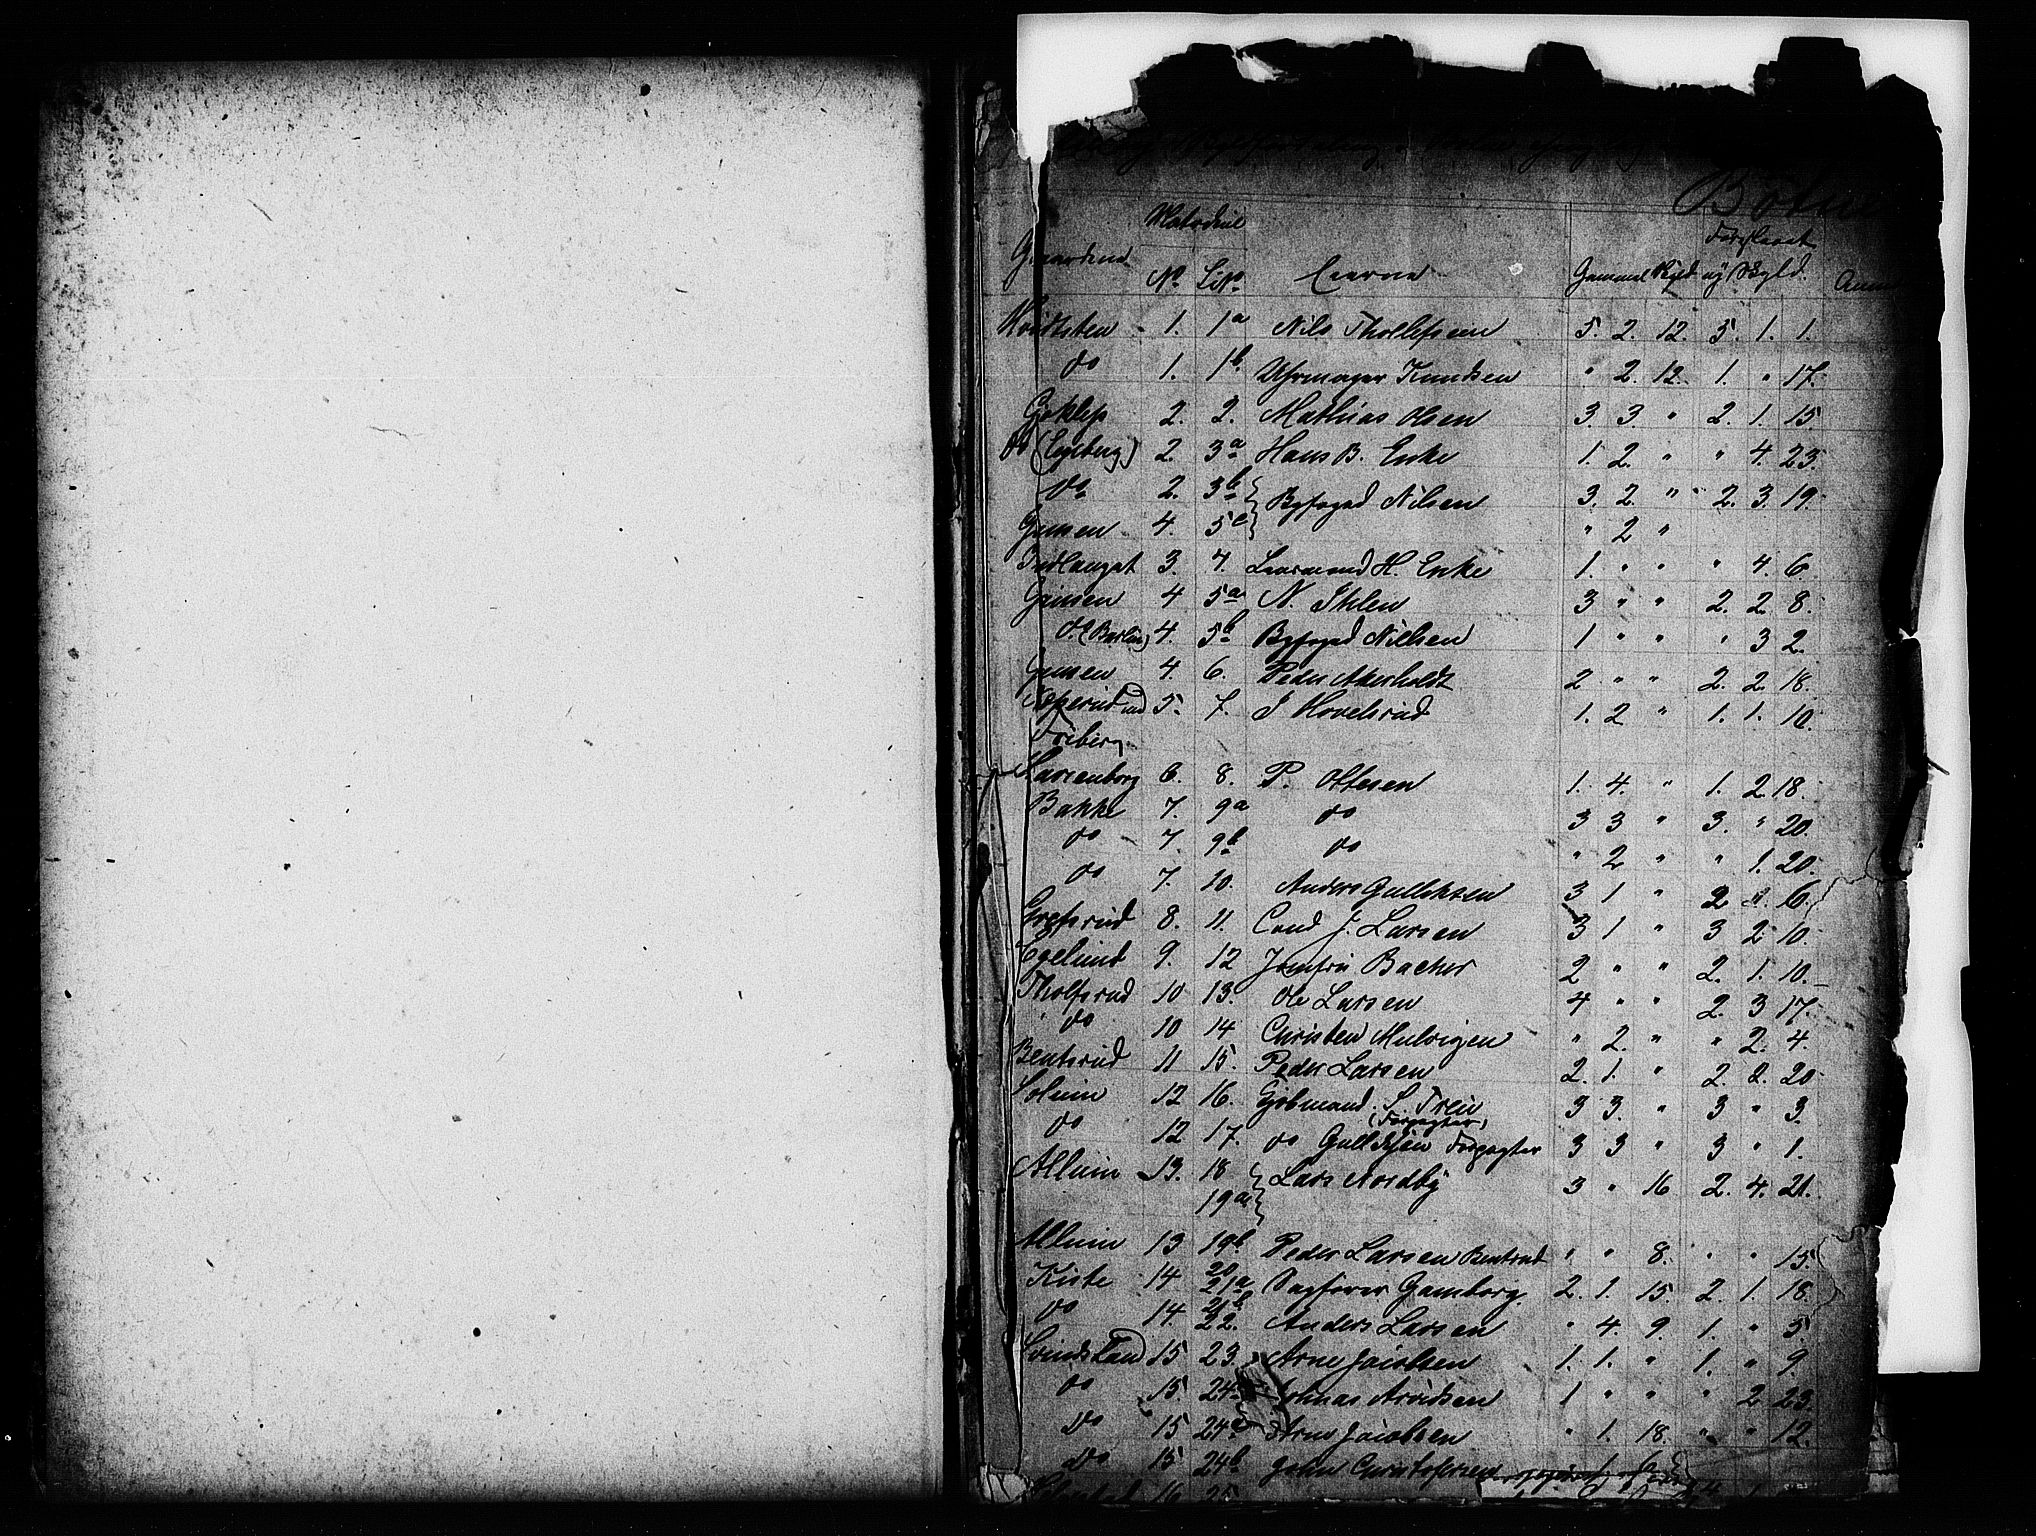 Botne
Matrikul
Forslaaet
Gaardens No LNo Eierne Gammel Skyld ny Skyld. Anm
Hvidtsten 1. 1a Nils Thollefsen 5. 2. 12. 5. 1. 1.
do 1. 1b Uhrmager Knudsen " 2. 12. 1. " 17.
Goklep 2. 2. Mathias Olsen 3. 3 " 2. 1. 15
do (Egeberg) 2. 3a Hans B. Enke 1. 2. " " 4. 23.
do 2. 3b Byfoged Nilsen 3. 2. " 2. 3. 19.
Gunsen 4. 5c " 2 "
Indlauget 3. 4. H. Enke 1. " " " 4. 6.
Gunsen 4 5a N. Ihlen 3 " " 2. 2. 8.
do (Berlin) 4. 5b Byfoged Nielsen 1 " " " 3 2.
Gunsen 4. 6. Peder Akerholdt 2 " " 2. 2. 18.
5. 7. J Hovelsrud 1. 2 " 1. 1. 10.
Friberg
Larsenborg 6. 8. P. Ottesen 1. 4. " 1. 2. 18.
Bakke 7. 9a do 3 3 " 3. " 20.
do 7. 9b do " 2 " " 1. 20.
do 7. 10. Anders Gulliksen 3 1 " 2 " 6.
Grefsrud 8. 11. J. Larsen 3 1 " 3 2 10.
Egelund 9. 12 Jomfru Bacher 2 " " 2. 1. 10.
Tholfsrud 10 13. Ole Larsen 4 " " 2. 3 17.
do 10 14 Christen Mulvigen " 2. " " 2. 4.
Bentsrud 11 15. Peder Larsen 2. 1. " 2. 2. 20
Solum 12 16. Kjøbmand. S. Treu 3 3. " 3 " 3.
(Forpagter)
do 12 17. do Gulliksen Forpagter 3 3 " 3 " 1.
Allum 13. 18 Lars Nordby 3 " 16 2. 4. 21.
19a
Allum 13 19b Peder Larsen Bentsrud " " 8. " " 15.
Kiste 14 20 21a Sagfører Gamborg. 2. 1. 15. 2. 1. 18.
do 14. 21b 22. Anders Larsen " 4. 9. 1. " 5
Svindsland 15 23. Arne Jacobsen 1. 1. " 1. " 9
do 15 24 Jonas Arvidsen 1 " " " 2 23.
do 15 24c Arne Jacobsen " 1. 18. " " 12.
do 15 24b John Christofersen
16 25